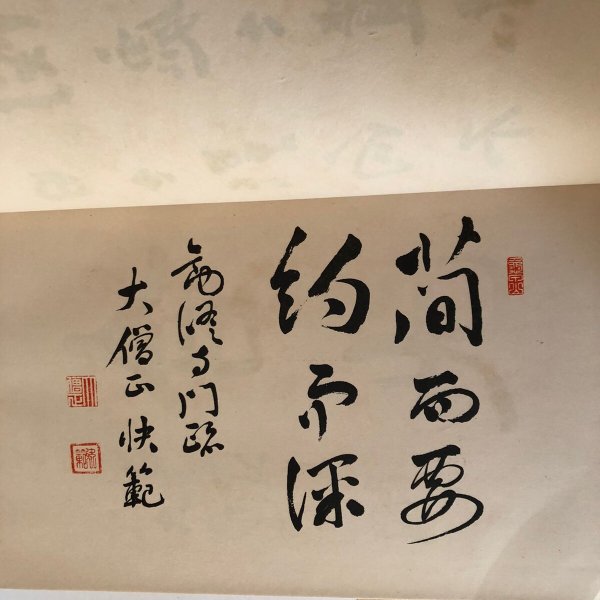 簡而要
約而深
勧修寺門跡
大僧正快範